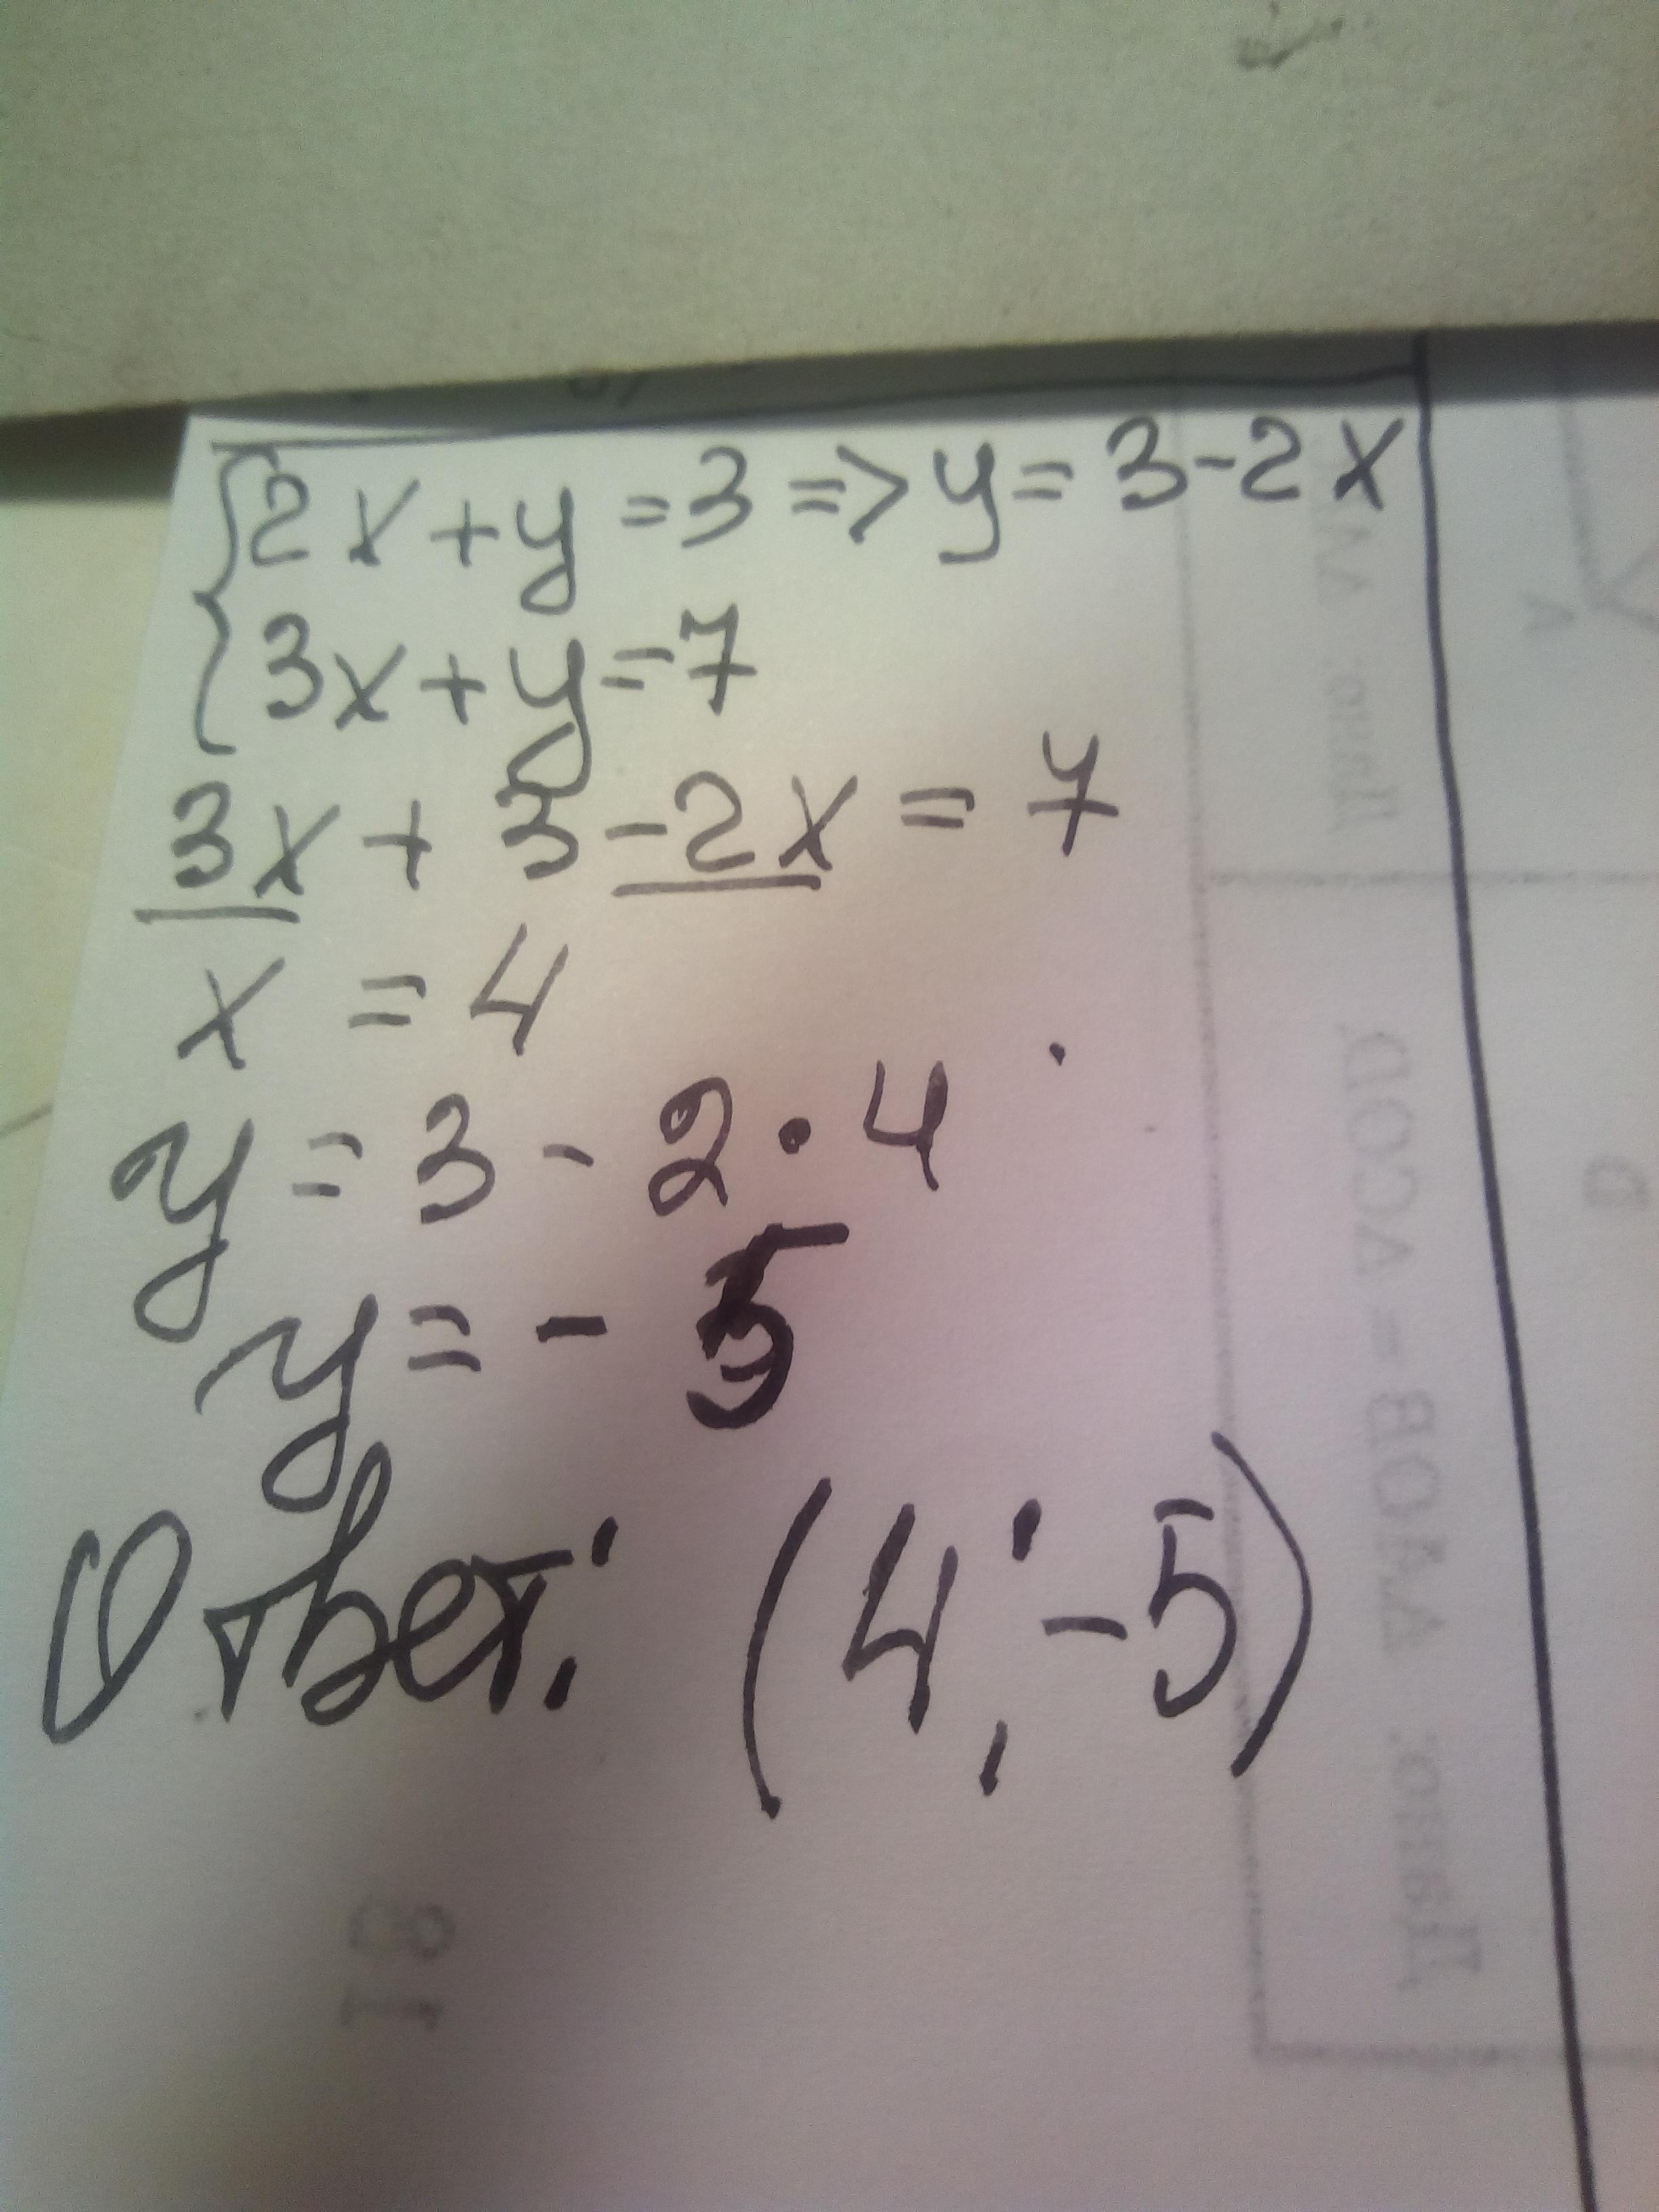 {2x+y=3=>y=3-2x
{3x+y=7
3x+3-2x=7
x=4
y=3-2·4
y=-5
Ответ: (4;-5)
18